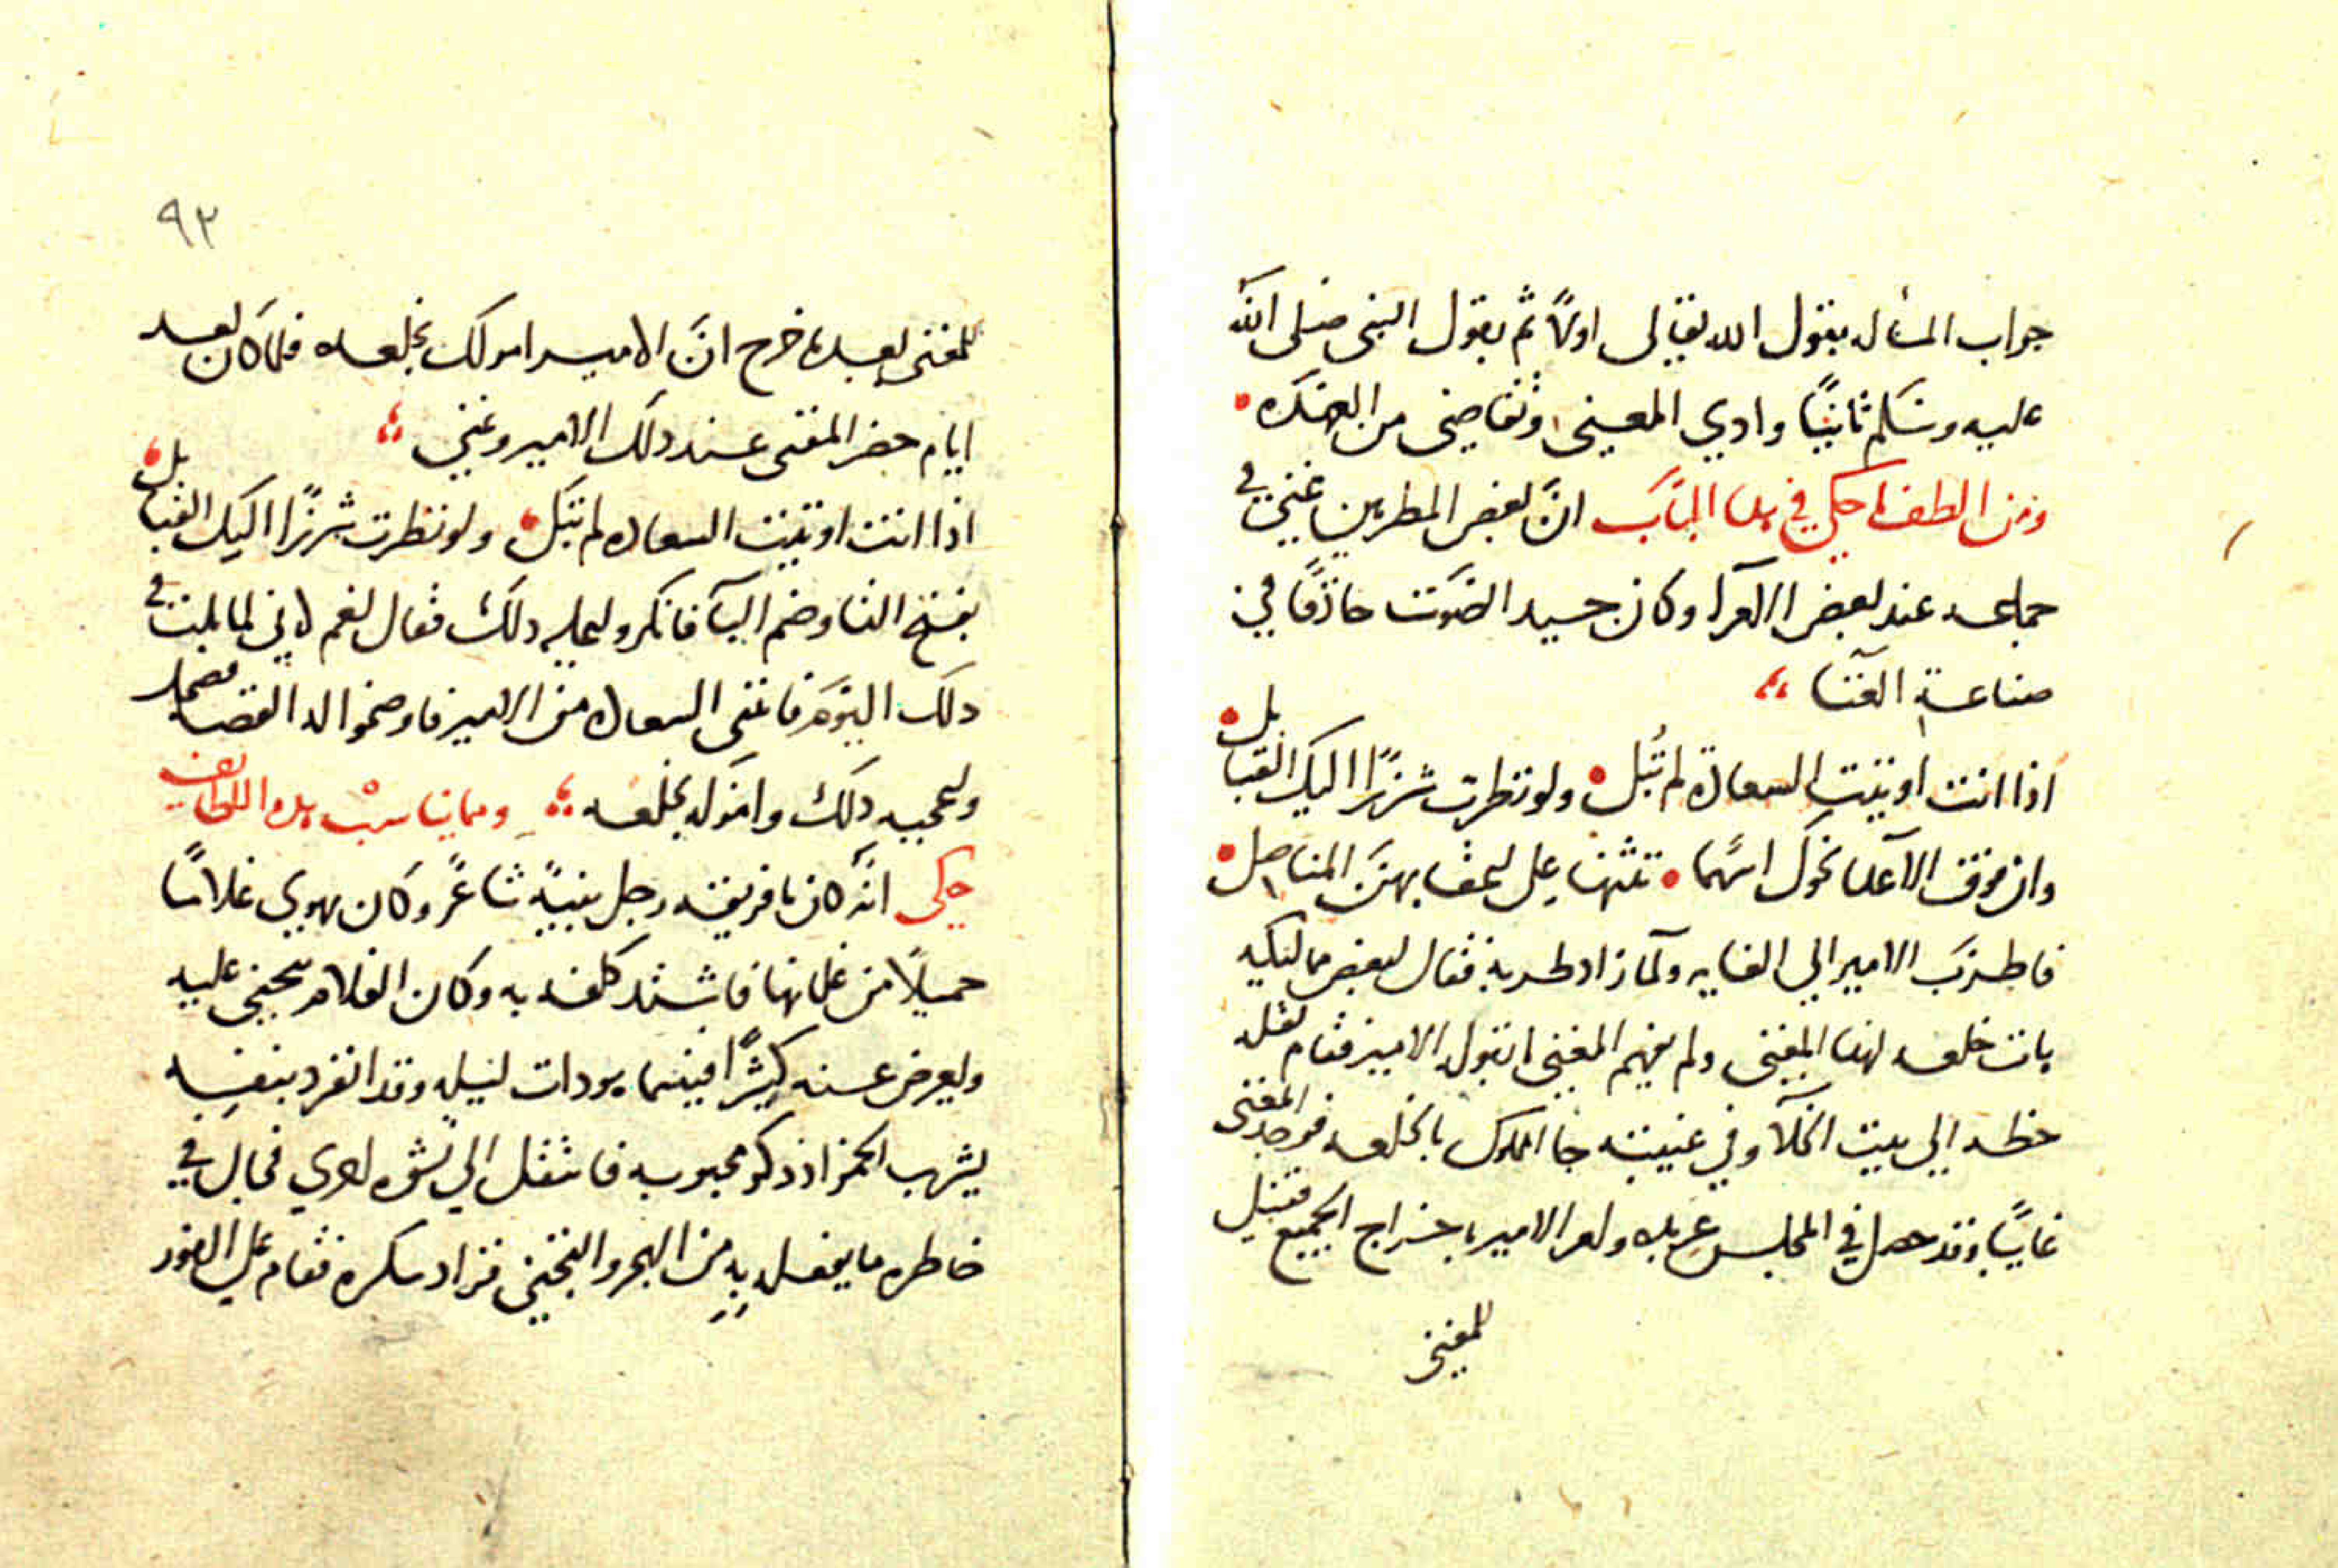 جواب المسأله بقول الله تعالى اولًا ثم بقول النبى صلى الله
عليه وسلم ثانيًا وادي المعنى وتفاصيى من العهده
ومن الطف ما حكي في هذا الباب انَّ بعض المطربين غنى في
جماعه عند بعض الامرآ وكان جيد الصوت حاذقًا في
صناعة الغنا
اذا انت اوتيت السعادة لم تُبل ولو نظرت شزرًا اليك القبايل
وان فوق الاعدا نحوك اسهما تثنها على اعقابهنَّ المناصل
فاطرب الامير الى الغايه ولما زاد طربه فقال لبعض مماليكه
هات خلعه لهذا المغنى ولم يفهم المغنى ما يقول الامير فقام لقلة
حظه الى بيت الخلآ وفي غيبته جا المملوك بالخلعه فوجد المغنى
غايبًا وقد حصل في المجلس عربده وامر الامير باخراج الجميع فقيل
للمغنى
٩٢
للمغنى بعد ما خرج انَّ الامير امر لك بخلعه فلما كان بعد
ايام حضر المغنى عند ذلك الامير وغنى
اذا انت اوتيت السعاده لم تبل ولو نظرت شزرًا اليك القبايل
بفتح التا وضم البآ فانكروا عليه ذلك فقال نعم لانى لما بلت في
ذلك اليوم فاتتنى السعاده من الامير فاوضحوا له القصه فضحك
واعجبه ذلك وامر له بخلعه ومما يناسب هذه اللطايف
حكى انَّه كان بافريقيه رجل نبيهٌ شاعرٌ وكان يهوى غلامًا
جميلًا من غلمانها فاشتد كلفه به وكان الغلام يتجنى عليه
ويعرض عنه كثيرًا فبينما هو ذات ليله وقد انفرد بنفسه
يشرب الخمر اذ ذكر محبوبه فانتقل الي نشوه اخرى فجال في
خاطره ما يفعله به من الهجر والتجنى فزاد سكره فقام على الفور